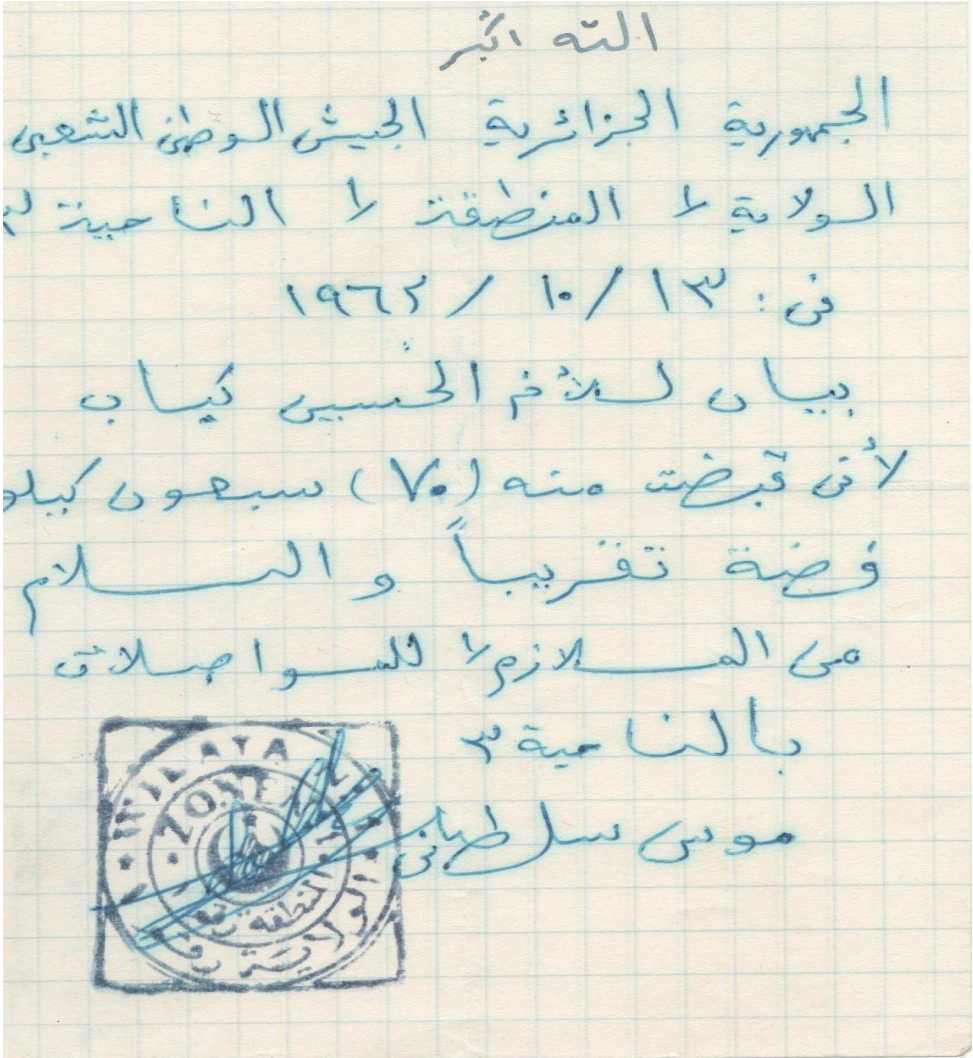 الله أكبر
الجمهورية الجزائرية الجيش الوطني الشعبي
الولاية ١ المنطقة ١ الناحية ٣
في: ١٣/ ١٠ / ١٩٦٢
بيان للأخ الحسين كباب
لأني قبضت منه (٧٠) سبعون كيلو
فضة تقريباً والسلام
من الملازم ١ للمواصلات
بالناحية ٣
موسى سلطاني
WILAYA
ZONE
المنطقة
الولاية